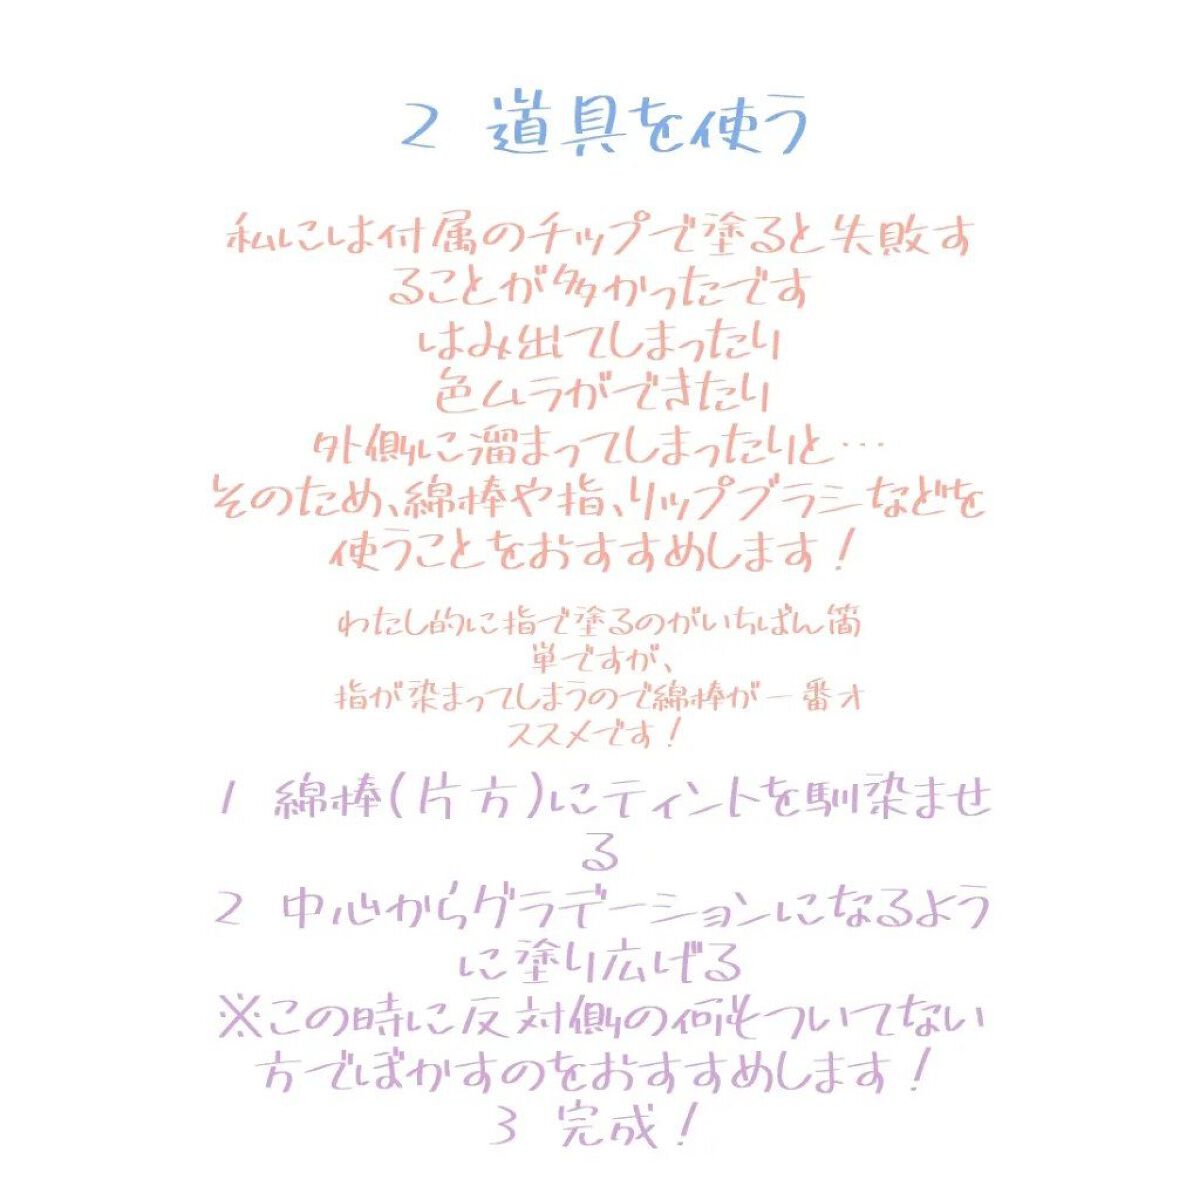 2 道具を使う
私には付属のチップで塗ると失敗す
ることが多かったです
はみ出てしまったり
色ムラができたり
外側に溜まってしまったりと…
そのため、綿棒や指、リップブラシなどを
使うことをおすすめします!
わたし的に指で塗るのがいちばん簡
単ですが、
指が染まってしまうので綿棒が一番オ
ススメです!
1 綿棒(片方)にティントを馴染ませ
る
2 中心からグラデーションになるよう
に塗り広げる
※この時に反対側の何もついてない
方でぼかすのをおすすめします!
3 完成!